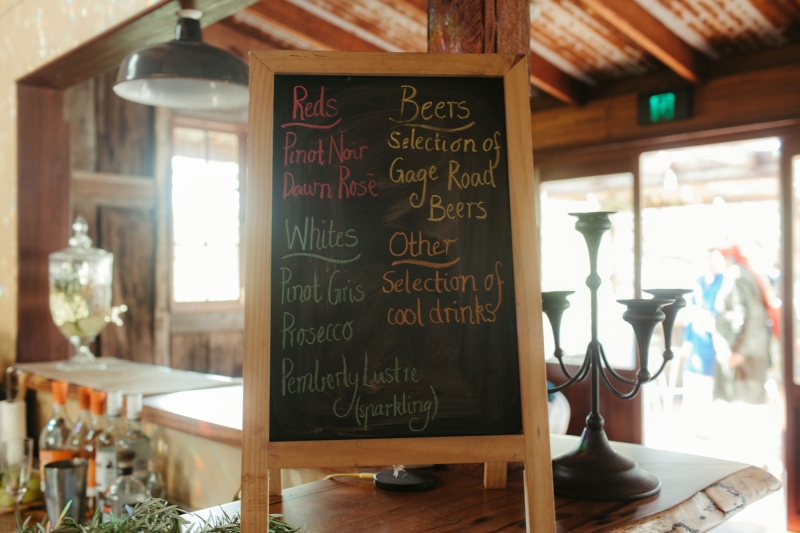 Reds
Pinot Noir
Dawn Rosē
Whites
Pinot Gris
Prosecco
Pemberly Lustre
(sparkling)
Beers
Selection of
Gage Road
Beers
Other
Selection of
cool drinks